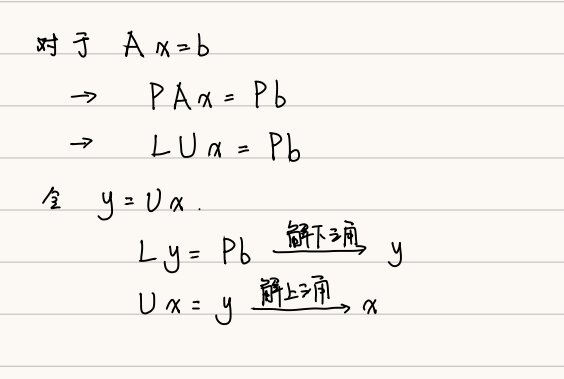 对于 Ax=b
→ PAx = Pb
→ LUx = Pb
令 y=Ux.
Ly = Pb 解下三角→ y
Ux = y 解上三角→ x